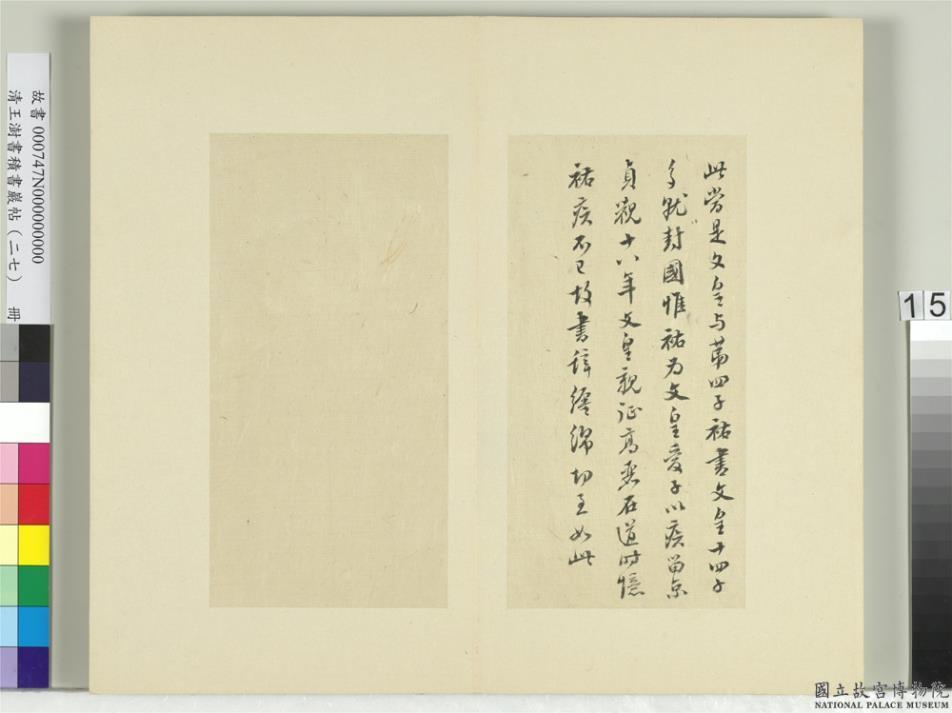 此當是文皇与苐四子祐書文皇十四子
多就封國惟祐为文皇愛子以疾留京
貞觀十八年文皇親征高麗在道时憶
祐疾不已故書辞纏綿切至如此
故書 000747N000000000
清王澍書積書巖帖(二七) 冊
15
國立故宮博物院
NATIONAL PALACE MUSEUM